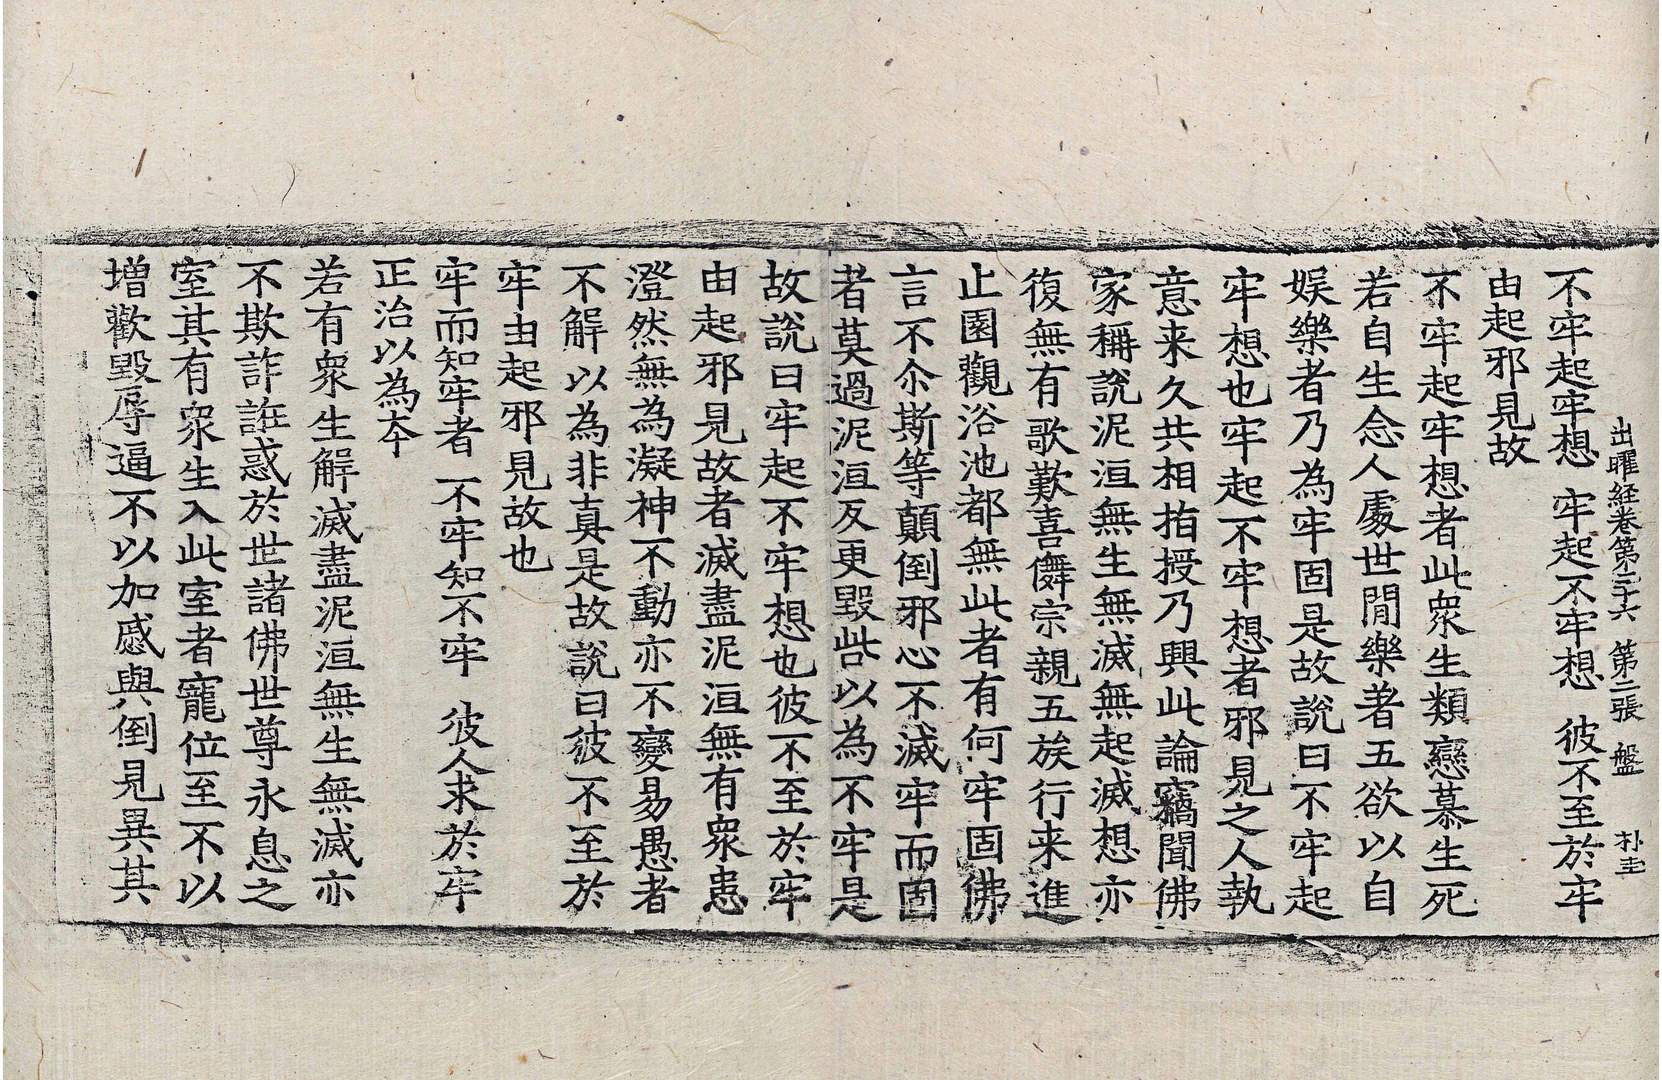 出曜經卷第二十六 第二張 盤 朴圭
不牢起牢想 牢起不牢想 彼不至於牢
由起邪見故
不牢起牢想者此衆生類戀慕生死
若自生念人處世閒樂著五欲以自
娛樂者乃為牢固是故說曰不牢起
牢想也牢起不牢想者邪見之人執
意来久共相拍授乃興此論竊聞佛
家稱說泥洹無生無滅無起滅想亦
復無有歌歎喜儛宗親五族行来進
止園觀浴池都無此者有何牢固佛
言不尒斯等顛倒邪心不滅牢而固
者莫過泥洹反更毀呰以為不牢是
故說曰牢起不牢想也彼不至於牢
由起邪見故者滅盡泥洹無有衆患
澄然無為凝神不動亦不變易愚者
不解以為非真是故說曰彼不至於
牢由起邪見故也
牢而知牢者 不牢知不牢 彼人求於牢
正治以為夲
若有衆生解滅盡泥洹無生無滅亦
不欺詐誑惑於世諸佛世尊永息之
室其有衆生入此室者寵位至不以
增歡毀辱逼不以加慼與倒見異其